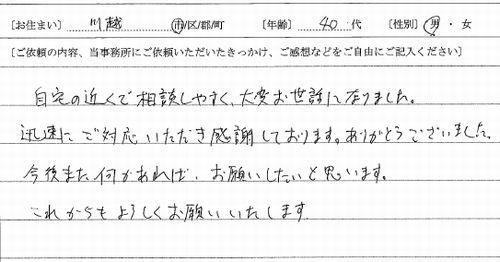 ［お住まい］ 川越 市/区/郡/町 ［年齢］ 40 代 ［性別］ 男・女
［ご依頼の内容、当事務所にご依頼いただいたきっかけ、ご感想などをご自由にご記入ください］
自宅の近くで相談しやすく、大変お世話になりました。
迅速にご対応いただき感謝しております。ありがとうございました。
今後また何かあれば、お願いしたいと思います。
これからもよろしくお願いいたします